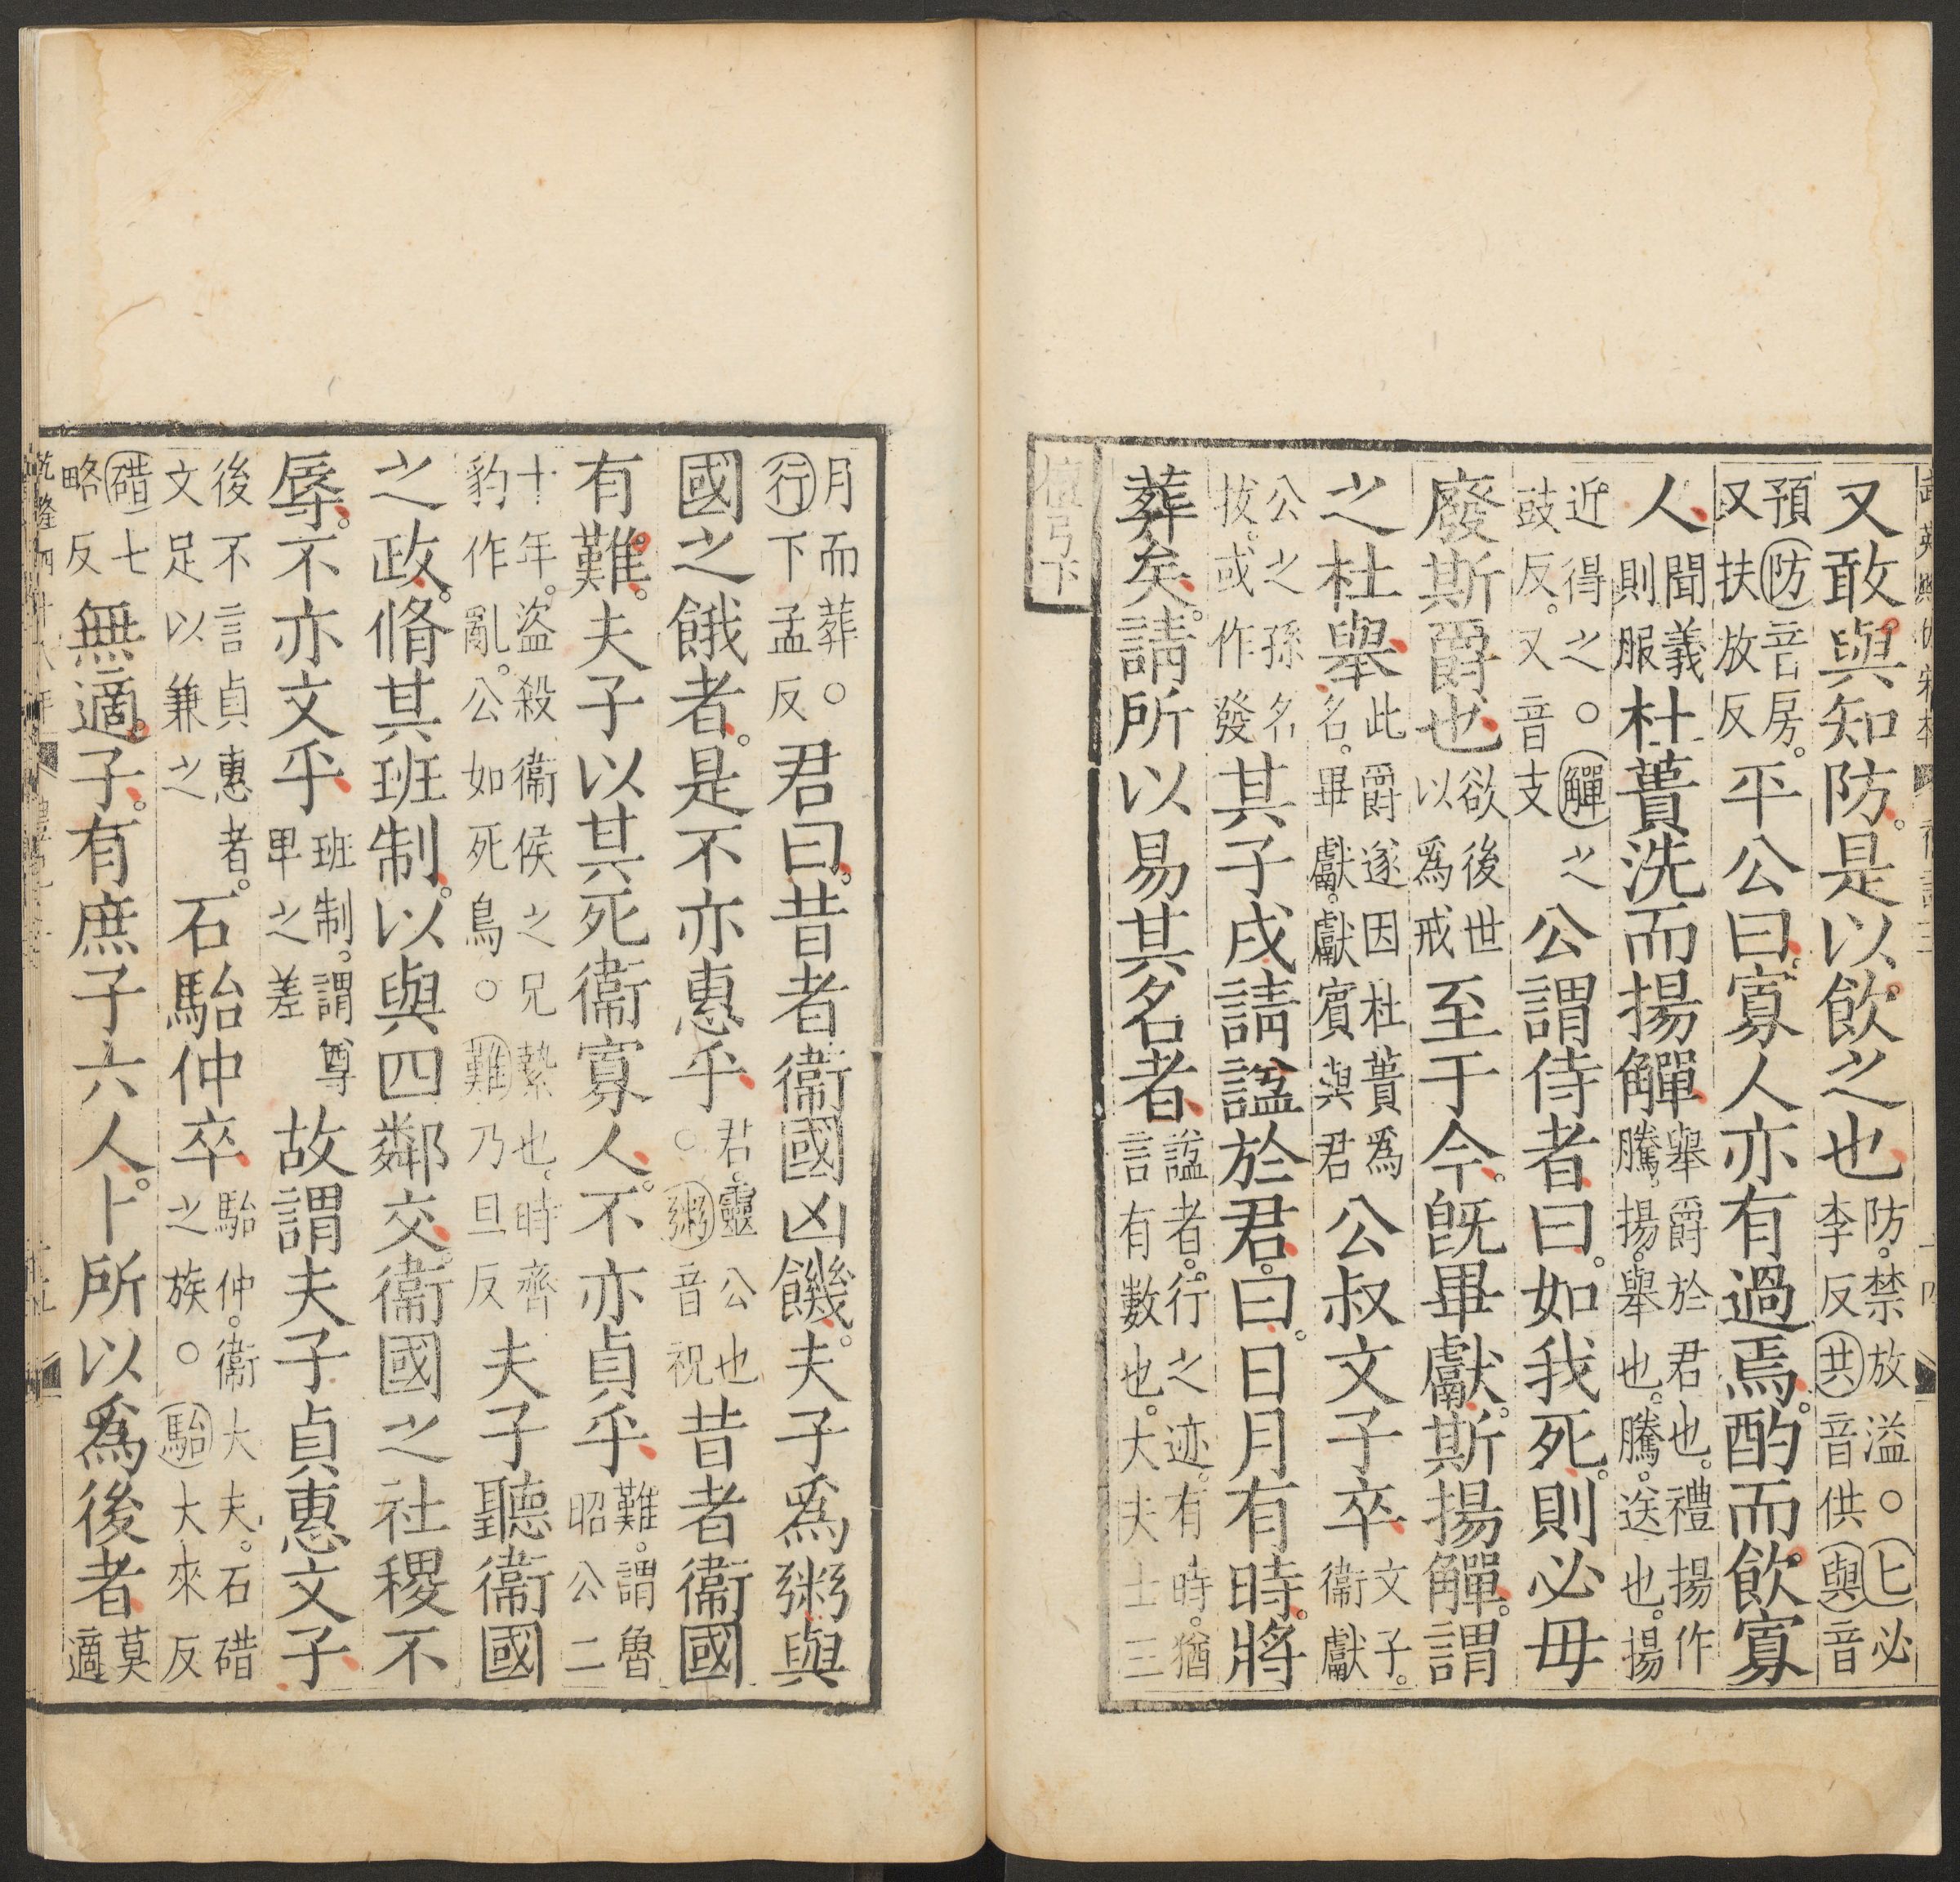 又敢與知防。是以飲之也防。禁放溢。○匕必李反共音供與音
預防音房。又扶放反平公曰。寡人亦有過焉。酌而飲寡
人聞義則服杜蕢洗而揚觶舉爵於君也。禮揚作騰。揚。舉也。騰。送也。揚
近得之。○觶之豉反。又音支公謂侍者曰。如我死。則必毋
廢斯爵也欲後世以爲戒至于今。旣畢獻。斯揚觶。謂
之杜舉此爵遂因杜蕢爲名。畢獻。獻賓與君公叔文子卒文子。衞獻
公之孫名拔。或作發其子戍請謚於君。曰。日月有時。將
葬矣。請所以易其名者謚者。行之迹。有時。猶言有數也。大夫士三
檀弓下
月而葬。○行下孟反君曰。昔者衞國凶饑。夫子爲粥與
國之餓者。是不亦惠乎君。靈公也○粥音祝昔者衞國
有難。夫子以其死衞寡人。不亦貞乎難。謂魯昭公二
十年。盗殺衞侯之兄縶也。時齊豹作亂。公如死鳥。○難乃旦反夫子聽衞國
之政。脩其班制。以與四鄰交。衞國之社稷不
辱。不亦文乎班制。謂尊卑之差故謂夫子貞惠文子
後不言貞惠者。文足以兼之石駘仲卒駘仲。衞大夫。石碏之族。○駘大來反
碏七略反無適子。有庶子六人。卜所以爲後者莫適